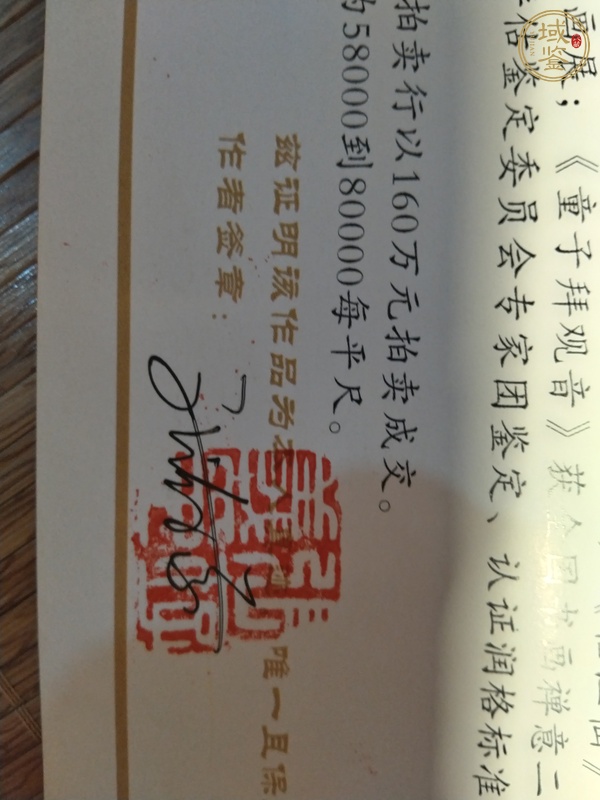 画展；《童子拜观音》获全国书画禅意二
鉴定委员会专家团鉴定、认证润格标准
拍卖行以160万元拍卖成交。
为58000到80000每平尺。
兹证明该作品为本人 唯一且保
作者签章：
域鉴